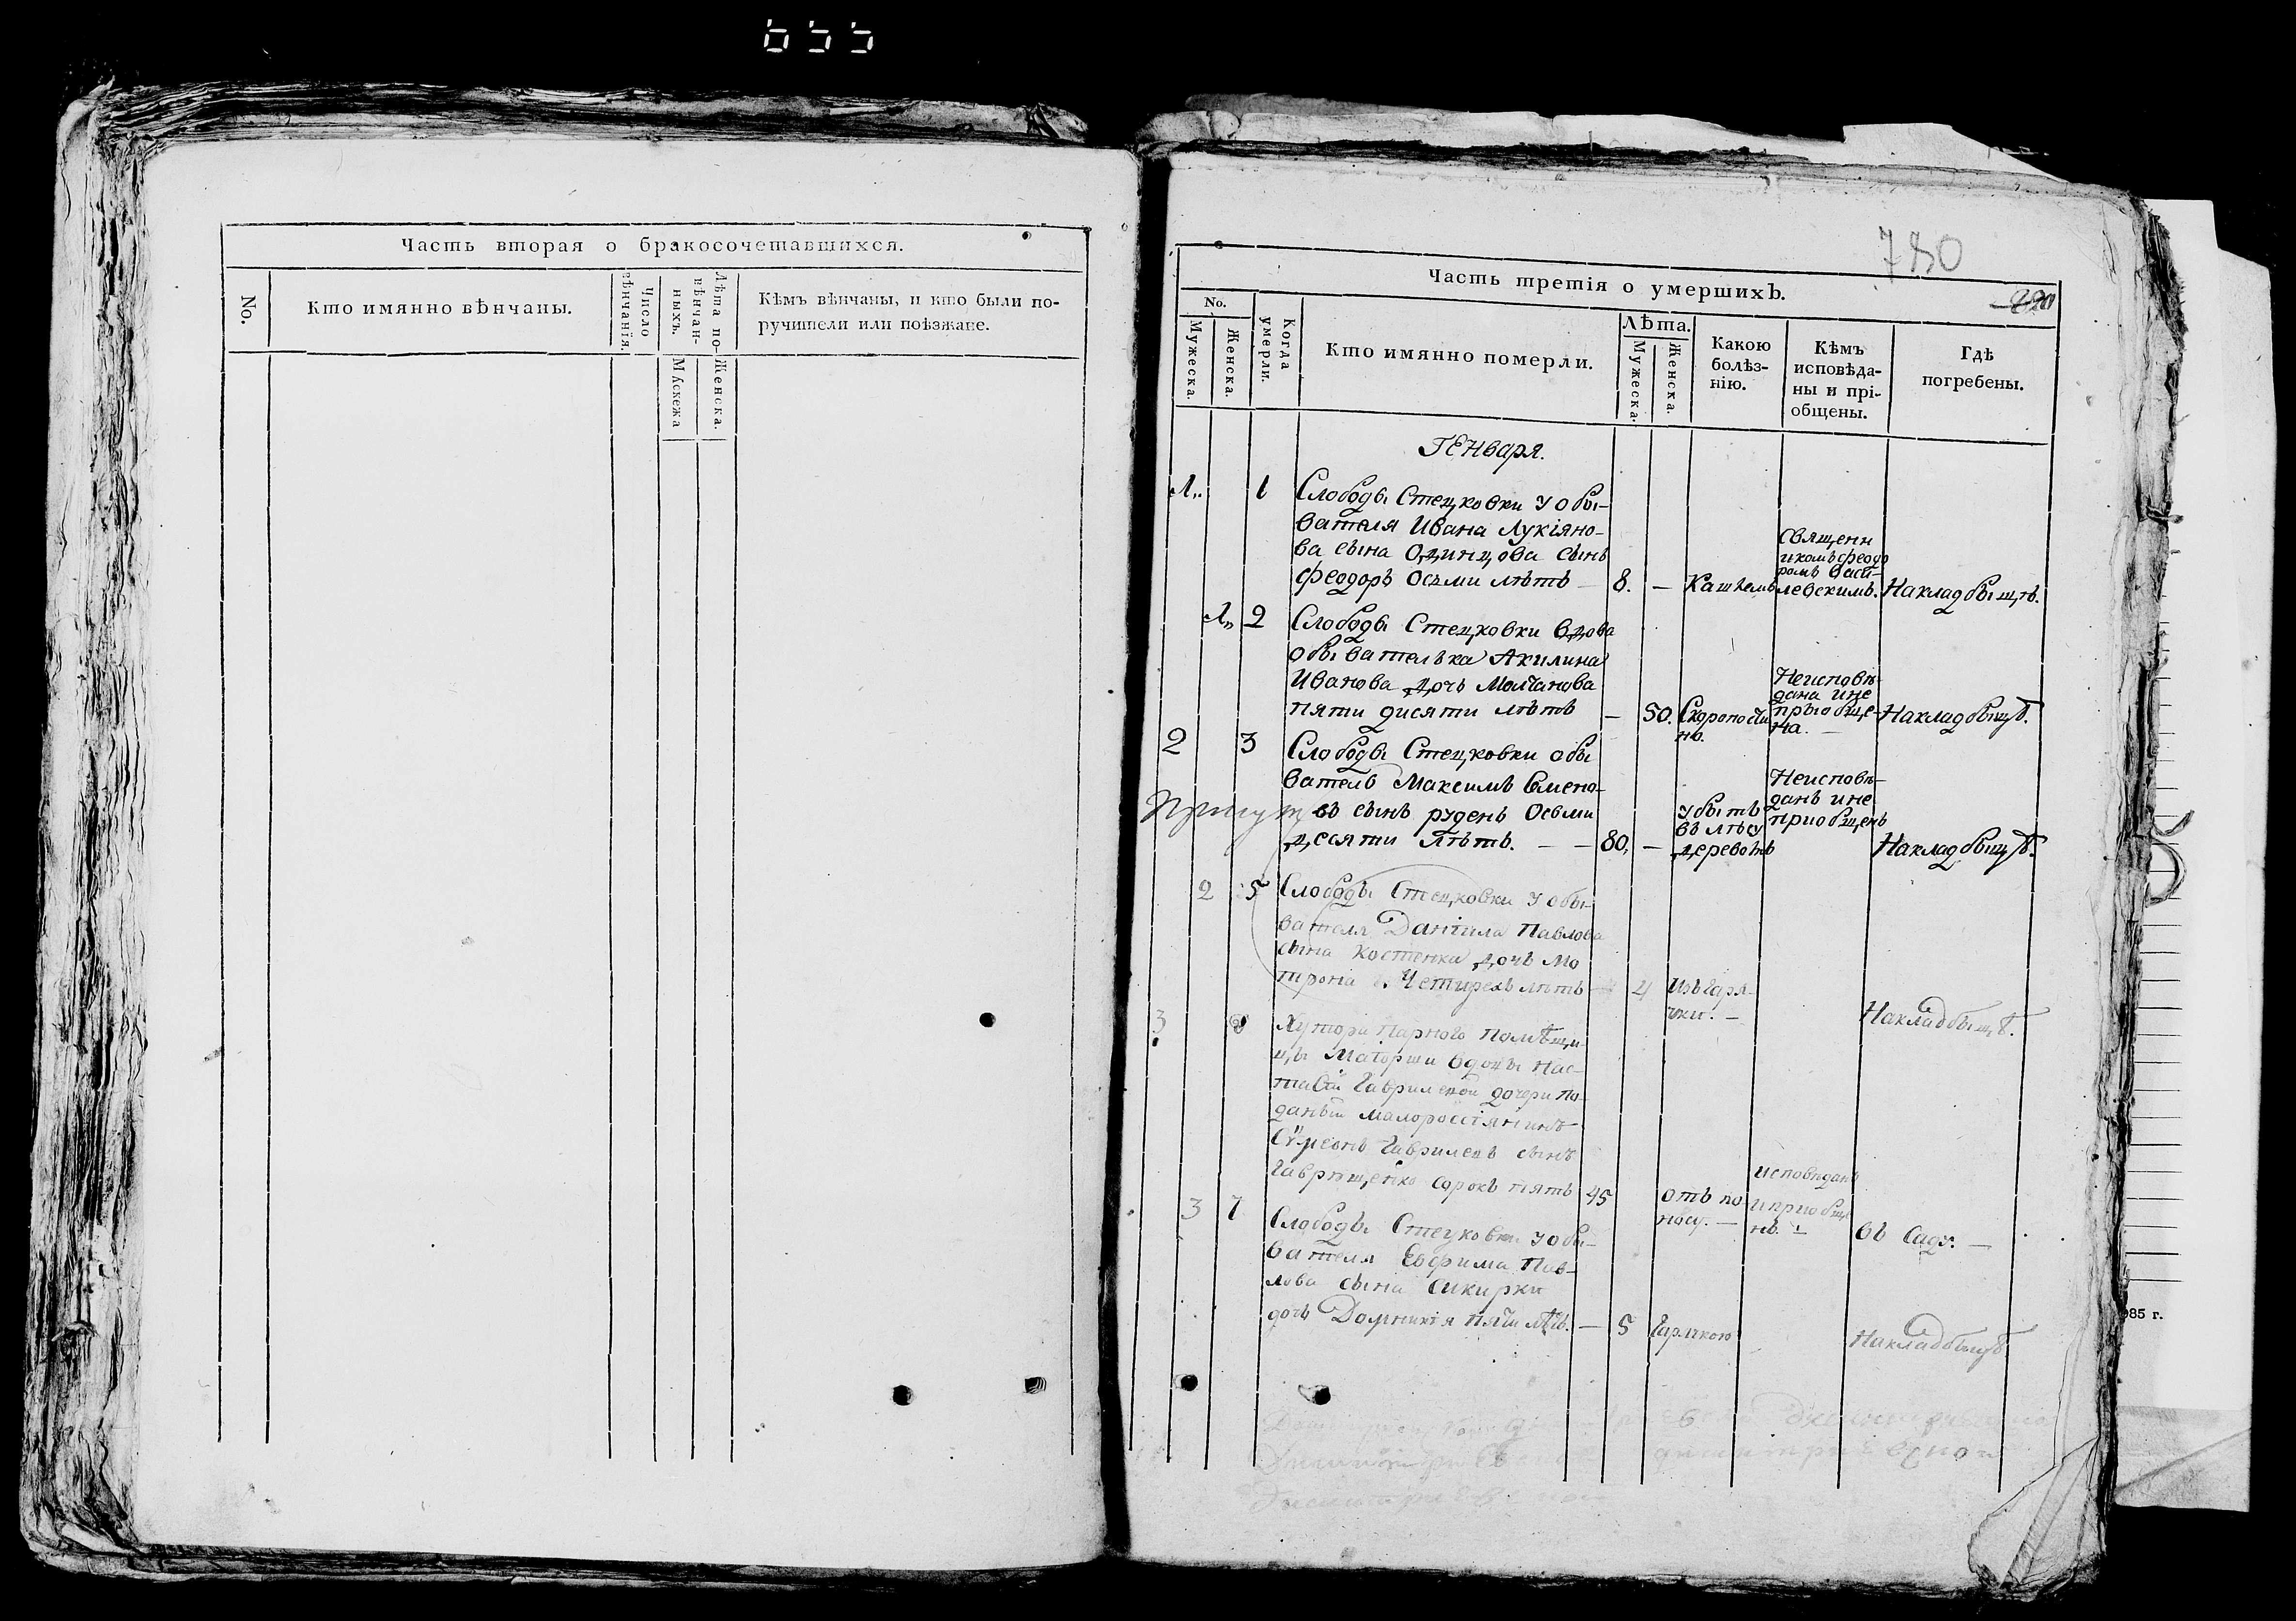 655
Часть вторая о бракосочетавшихся.
No.
Кто имянно вѣнчаны.
Число вѣнчанія.
Лѣта по-вѣнчан-ныхъ.
Мужеска
Женска.
Кѣмъ вѣнчаны, и кто были по-
ручители или поѣзжане.
780
Часть третія о умершихъ.
No.
Мужеска.
Женска.
Когда умерли.
Кто имянно померли.
Лѣта.
Мужеска.
Женска.
Какою
болѣз-
нію.
Кѣмъ
исповѣда-
ны и прі-
общены.
Гдѣ
погребены.
Генваря.
1 Слободы Стецковки у обы-
вателя Ивана Лукіяно-
ва сына Одинцова сынъ
Феодоръ осьми лѣтъ — 8. — Кашлемъ
Священн
икомъ Феодо
ромъ Васи-
левскимъ.
Накладбыщѣ.
2 Слободы Стецковки вдова
обывателька Акилина
Иванова дочь Молчанова
пяти дисяти лѣтъ — 50. Скоропости
но.
Неисповѣ-
дана ине
приобще-
на. —
Накладбыщѣ.
2 3 Слободы Стецковки обы
ватель Максимъ Семено-
въ сынъ рудень Осьми
десяти лѣтъ. — — 80, —
убытъ
въ лѣсу
деревомъ
Неисповѣ-
данъ ине
приобщенъ
Накладбыщѣ.
2 5 Слободы Стецковки у обы-
вателя Даніила Павлова
сына Костенка дочь Мо
тронія Четирехъ лѣтъ — 4 Изъ гаря-
чки. —
Накладбыщѣ.
3 Хутора Парного помѣщи-
цы Маіорши вдовы Нас-
тасіи Гавриловой дочери по-
даный малоросіянинъ
Сѵмеонъ Гавриловъ сынъ
Гаврищенко сорокъ пять 45
отъ по
носу. —
исповѣданъ
и приобще
нъ. —
въ Саду. —
3 7 Слободы Стецковки у обы-
вателя Евфима Пав-
лова сына Сикирки
дочь Домникія пяти лѣтъ. — 5 Гарячкою
Накладбыщѣ
985 г.